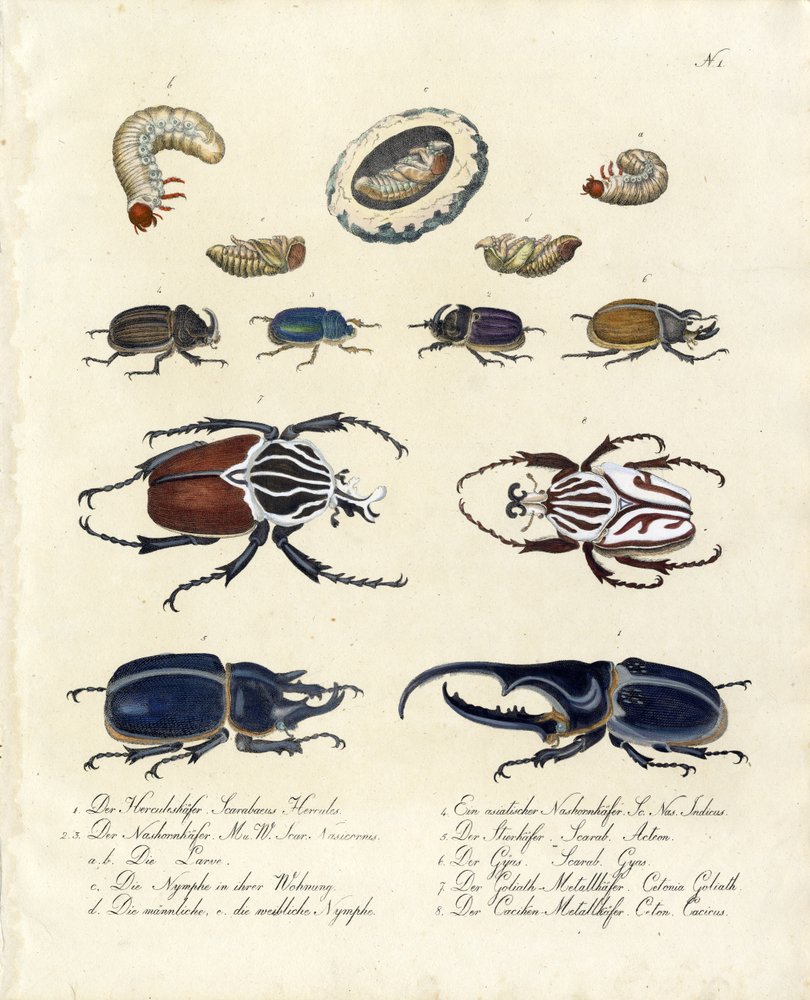 N 1.
b
c
a
e
d
4
3
2
6
7
8
5
1
1. Der Herculeskäfer Scarabaeus Hercules.
2.3. Der Nashornkäfer. M. u. W. Scar. Nasicornis.
a, b. Die Larve.
c. Die Nymphe in ihrer Wohnung.
d. Die männliche, e. die weibliche Nymphe.
4. Ein asiatischer Nashornkäfer. Sc. Nas. Indicus.
5. Der Stierkäfer. Scarab. Acteon.
6. Der Gyas. Scarab. Gyas.
7. Der Goliath-Metallkäfer. Cetonia Goliath.
8. Der Caciken-Metallkäfer. Ceton. Cacicus.